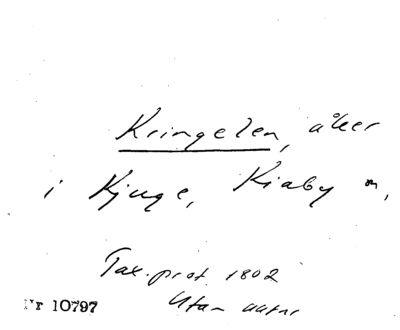 Kringelen, åker
i Kjuge, Kiaby sn,
Tax.prot. 1802
Nr 10797 Utan